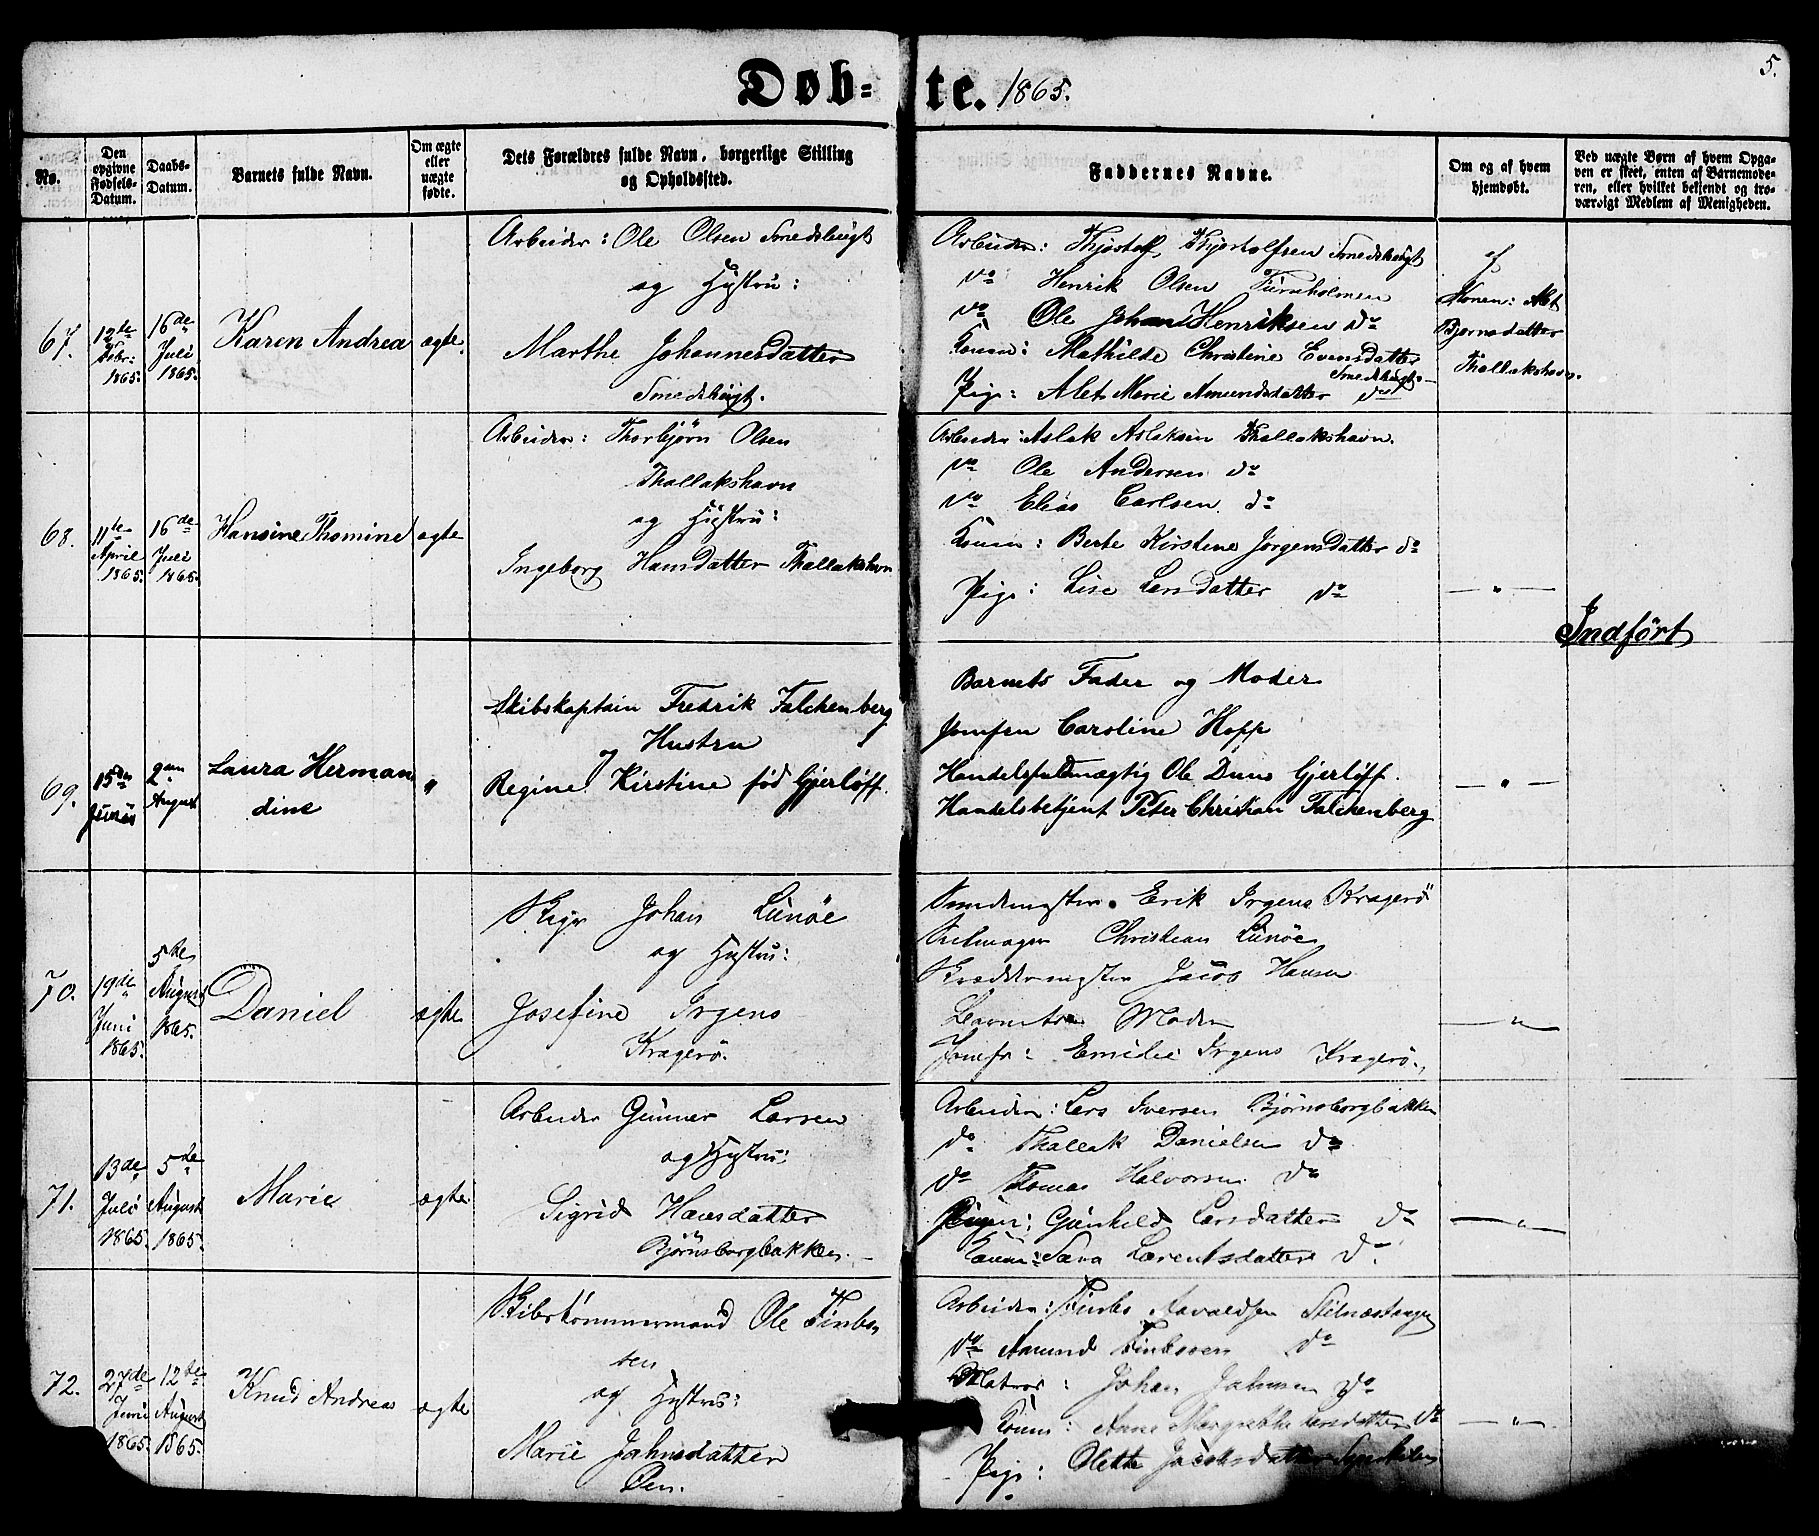 5.
Døb- te. 1865.
No.
Den opgivne Fødsels-Datum.
Daabs-Datum.
Barnets fulde Navn.
Om ægte eller uægte fødte.
Dets Forældres fulde Navn, borgerlige Stilling og Opholdssted.
Faddernes Navne.
Om og af hvem hjemdøbt.
Ved uægte Børn af hvem Opgaven er skeet, enten af Barnemoderen, eller hvilket bekjendt og troværdigt Medlem af Menigheden.
67.
12te
1865.
16de
Juli
1865.
Karen Andrea
ægte.
Arbeider: Ole Olsen Smedsbugt
og Hustru:
Marthe Johannesdatter
Smedsbugt.
Arbeider: Thjostolf Thjostolfsen Smedsbugt
do Henrik Olsen Furuholmen
do Ole Johan Henriksen do
Konen: Mathilde Christine Evensdatter
Smedsbugt
Pige: Alet Marie Amundsdatter do
af
Konen: Alet
Bjornsdatter
Thallakshavn.
68.
11te
April
1865.
16de
Juli
1865.
Hansine Thomine
ægte
Arbeider: Thorbjørn Olsen
Thallakshavn
og Hustru:
Ingeborg Hansdatter Thallakshavn
Arbeider: Aslak Aslaksen Thallakshavn.
do Ole Andersen do
do Elias Carlsen do
Konen: Berte Kirstine Jorgensdatter do
Pige: Lise Larsdatter do
— " —
Indført
69.
15de
Junii
2den
August
Laura Herman
dine
"
Skibskaptain Fredrik Falckenberg
og Hustru
Regine Kirstine fød Gjerløff.
Barnets Fader og Moder
Jomfru Caroline Hopp
Handelsfuldmægtig Ole Duus Gjerløff.
Handelsbetjent Peter Christian Falckenberg
— " —
70.
19de
Juni
1865.
5te
August
1865.
Daniel
ægte
Skipr Johan Lunöe
og Hustru:
Josefine Irgens
Kragerö.
Erik Irgens Kragerö
Christian Lunöe
Jacob Hansen
Barnets Moder
Jomfr: Emilie Irgens Kragerö.
— " —
71.
13de
Juli
1865.
5te
August
1865.
Marie
ægte
Arbeider Gunner Larsen
og Hustru:
Sigrid Hansdatter
Bjørnsborgbakken. —
Arbeider: Lars Iversen Bjørnsborgbakken
do Thallak Danielsen do
do Thomas Halvorsen do
Pigen: Gunhild Larsdatter do
Konen: Sara Larentsdatter do
— " —
72.
27de
Juni
1865.
12te
August
1865.
Knud Andreas
ægte
Skibstømmermand Ole Finbo
sen
og Hustru:
Marie Jahnsdatter
Øen.
Arbeider: Aavaldsen Stilnæstangen
do Amund do
Matros: Johan Jahnsen do
Konen: Anne Margrethe Larsdatter do
Pige: Olette Jacobsdatter
— " —